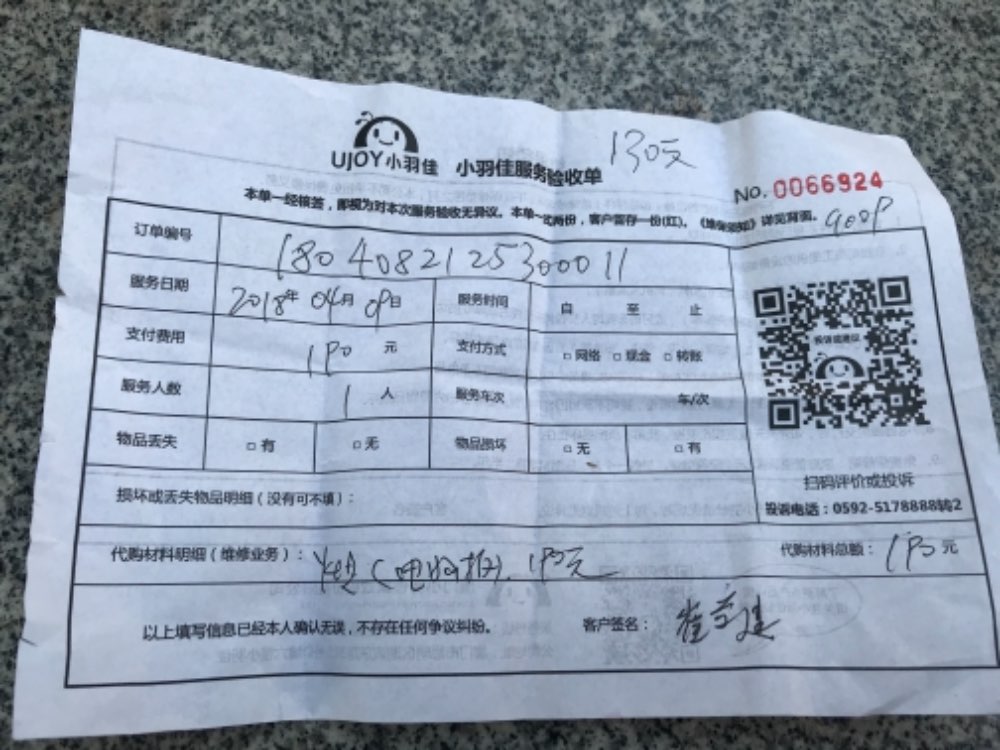 130元
UJOY小羽佳 小羽佳服务验收单
No. 0066924
本单一经核签，即视为对本次服务验收无异议。本单一式两份，客户留存一份(红)。《维保须知》详见背面。
订单编号 1804082125300011
服务日期 2018年 04月 09日 服务时间 自 至 止
支付费用 190 元 支付方式 □网络 □现金 □转账
服务人数 1 人 服务车次 车/次
物品丢失 □有 □无 物品损坏 □无 □有
投诉或建议
扫码评价或投诉
投诉电话：0592-5178888转2
损坏或丢失物品明细（没有可不填）：
代购材料明细（维修业务）： 190元 代购材料总额： 190元
以上填写信息已经本人确认无误，不存在任何争议纠纷。 客户签名：